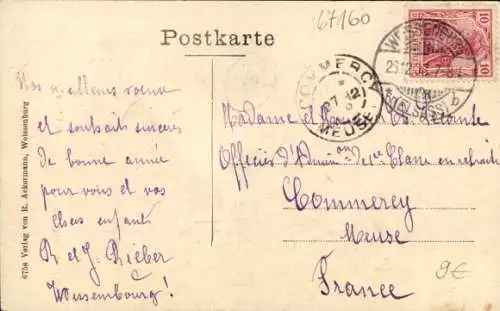 67160
Postkarte
WEISSENBURG
(ELSASS)
b
10
10
COMMERCY
MEUSE
Nos meilleurs voeux
et souhaits sincères
de bonne année
pour vous et vos
chers enfants
R et J. Rieber
Weissembourg!
Madame et
Officier d'Admin on de 1re Classe en retraite
Commercy
Meuse
France
9€
6758 Verlag von R. Ackermann, Weissenburg